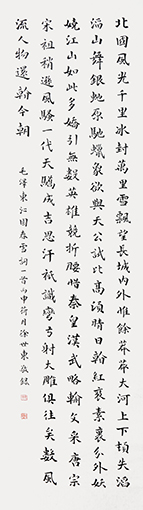 北國風光千里冰封萬里雪飄望長城內外惟餘莽莽大河上下頓失滔
滔山舞銀蛇原馳蠟象欲與天公試比高須晴日看紅裝素裹分外妖
嬈江山如此多嬌引無數英雄競折腰惜秦皇漢武略輸文采唐宗
宋祖稍遜風騷一代天驕成吉思汗祇識彎弓射大雕俱往矣數風
流人物還看今朝
毛澤東沁園春雪詞一首丙申荷月徐世東敬錄